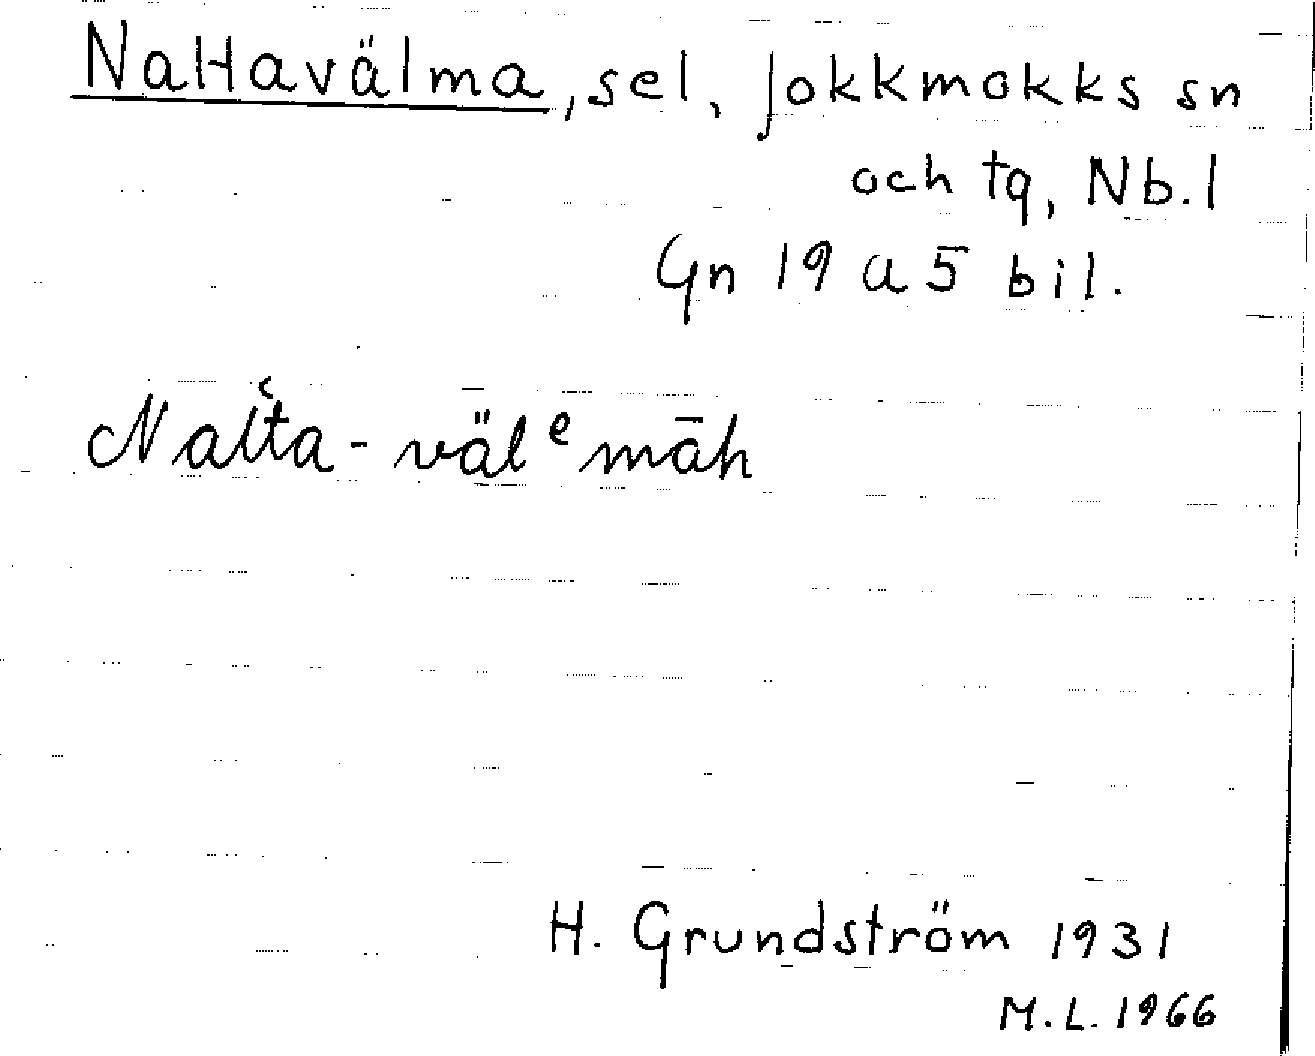 Nattavälma, sel, Jokkmokks sn
och tg, Nb. l
Gn 19 a 5 bil.
Nat‛ta-välᵉmāh
H. Grundström 1931
M.L. 1966